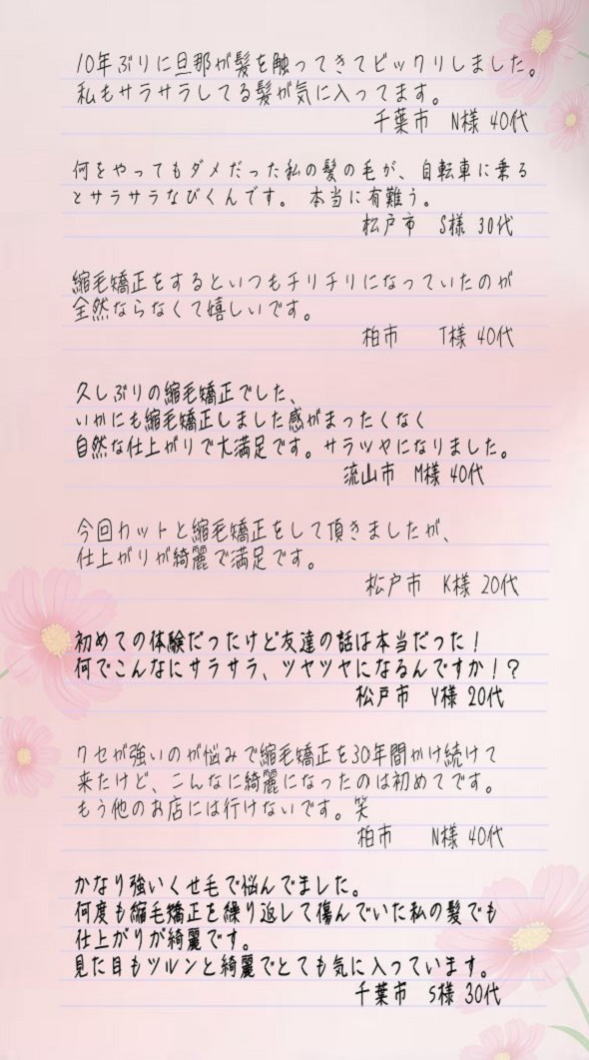 10年ぶりに旦那が髪を触ってきてビックリしました。
私もサラサラしてる髪が気に入ってます。
千葉市 N様 40代
何をやってもダメだった私の髪の毛が、自転車に乗る
とサラサラなびくんです。 本当に有難う。
松戸市 S様 30代
縮毛矯正をするといつもチリチリになっていたのが
全然ならなくて嬉しいです。
柏市 T様 40代
久しぶりの縮毛矯正でした、
いかにも縮毛矯正しました感がまったくなく
自然な仕上がりで大満足です。サラツヤになりました。
流山市 M様 40代
今回カットと縮毛矯正をして頂きましたが、
仕上がりが綺麗で満足です。
松戸市 K様 20代
初めての体験だったけど友達の話は本当だった!
何でこんなにサラサラ、ツヤツヤになるんですか!?
松戸市 Y様 20代
クセが強いのが悩みで縮毛矯正を30年間かけ続けて
来たけど、こんなに綺麗になったのは初めてです。
もう他のお店には行けないです。笑
柏市 N様 40代
かなり強いくせ毛で悩んでました。
何度も縮毛矯正を繰り返して傷んでいた私の髪でも
仕上がりが綺麗です。
見た目もツルンと綺麗でとても気に入っています。
千葉市 S様 30代